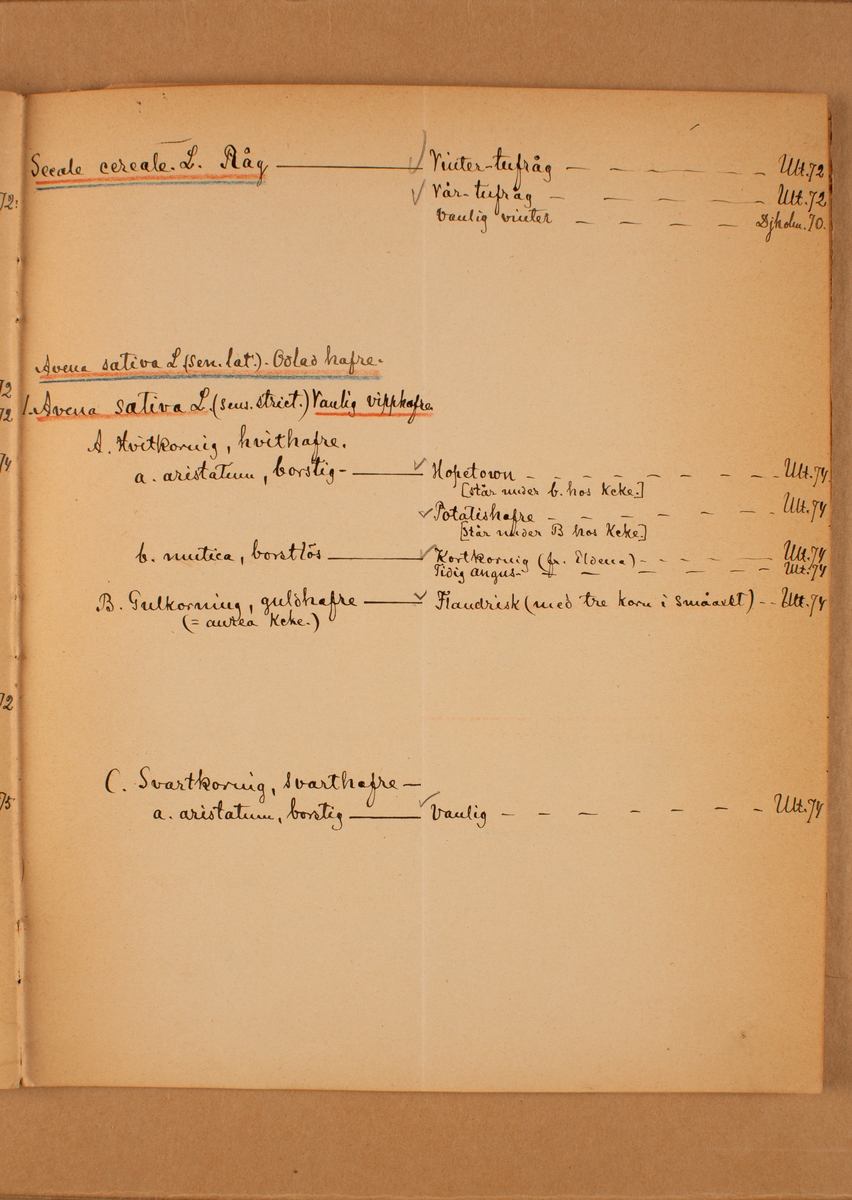 Secale cereale. L. Råg — Vinter-tufråg — — — — Ult. 72
Vår-tufråg — — — — Ult. 72
72:
Vanlig vinter — — — — Djholm. 70.
Avena sativa L (sen. lat.). Odlad hafre.
72
1. Avena sativa L. (sens. strict.) Vanlig vipphafre.
72
A. Hvitkornig, hvithafre.
74
a. aristatum, borstig — Hopetown — — — — — — Ult. 74
[står under b. hos Kcke.]
Potatishafre — — — — — Ult. 74
[står under B hos Kcke.]
b. mutica, borstlös — Kortkornig (fr. Eldena) — — — — Ult. 74
Tidig angus — — — — — Ult. 74
B. Gulkornig, guldhafre — Flandrisk (med tre korn i småaxet) — — Ult. 74
(= aurea Kcke.)
72
C. Svartkornig, svarthafre —
75
a. aristatum, borstig — Vanlig — — — — — — Ult. 74